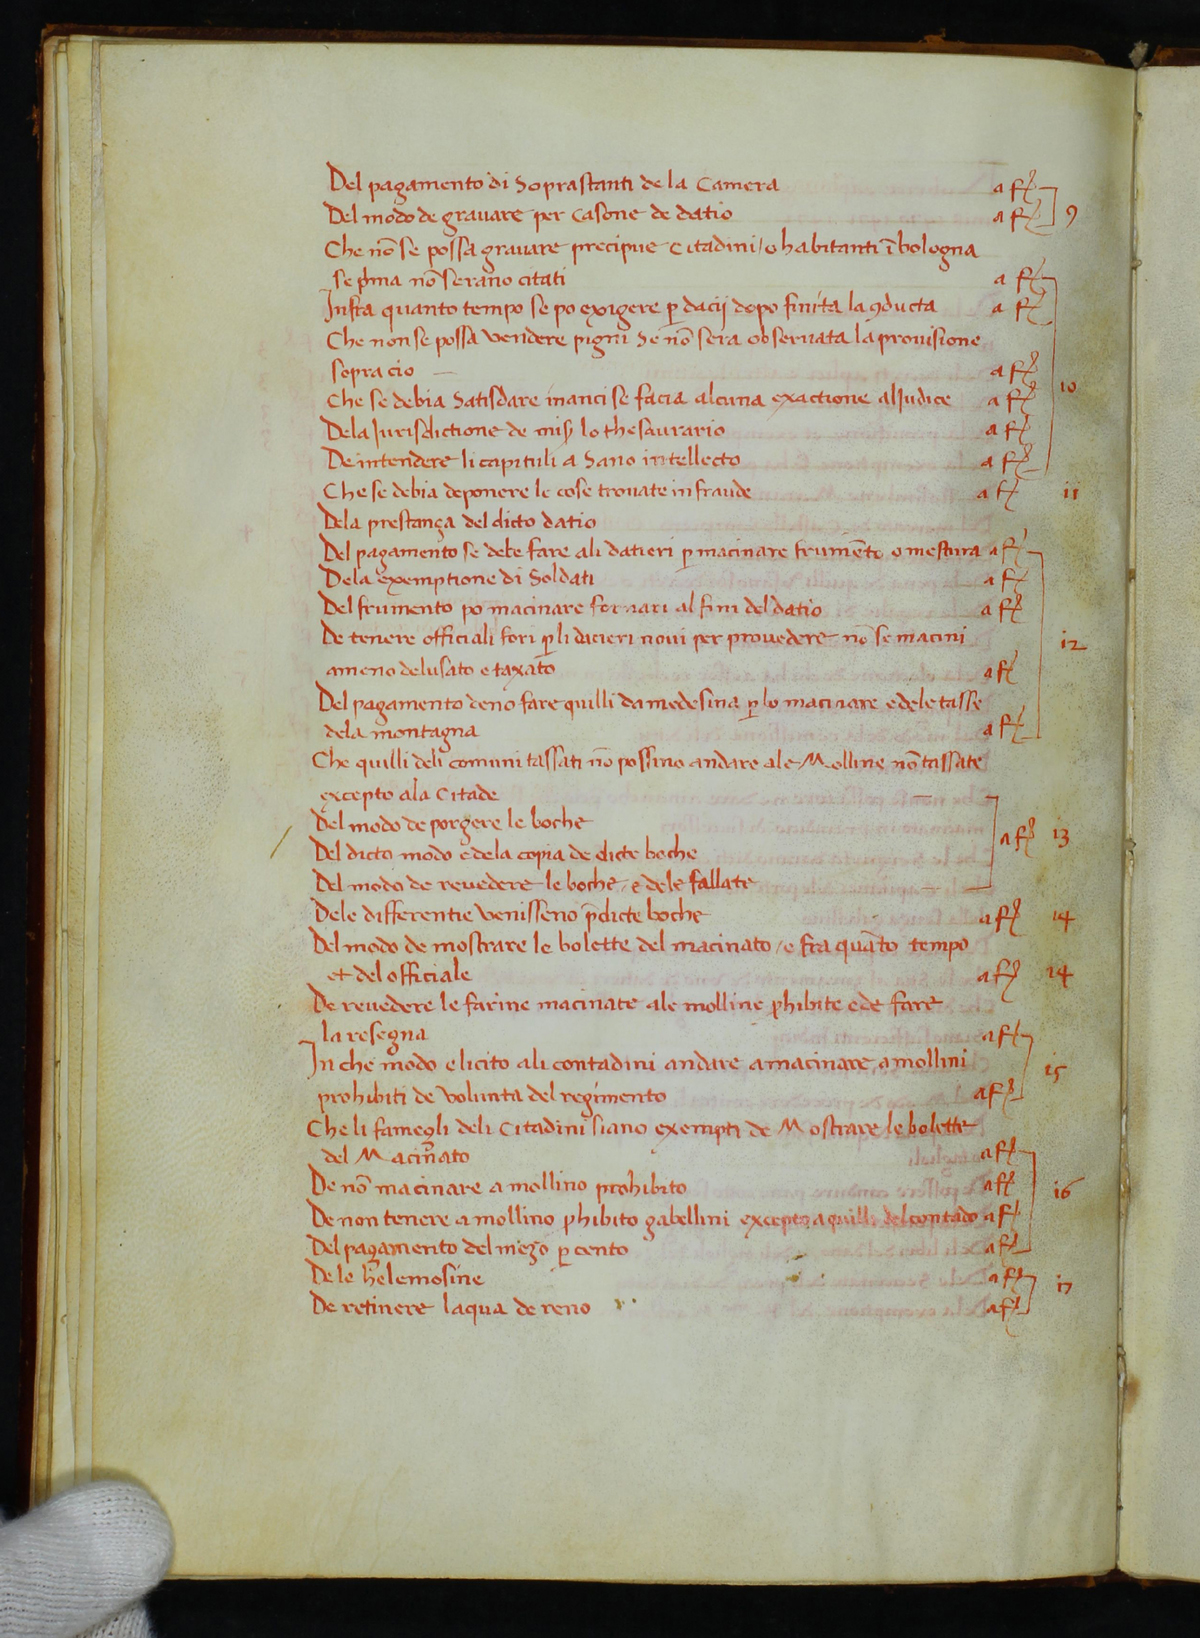 Del pagamento di Soprastanti de la Camera a f
Del modo de grauare per casone de datio a f 9
Che nō se possa grauare precipue Citadini / o habitanti ī bologna
se pͥma nō serano citati a f
Infra quanto tempo se po exigere ꝑ dacij dopo finita la ꝯducta a f
Che non se possa vendere pigni Se nō sera obseruata la prouisione
sopra cio a f 10
Che se debia Satisdare inanci se facia alcuna exactione al Judice a f
Dela Jurisdictione de lo thesaurario a f
De intendere li capituli a Sano intellecto a f
Che se debia deponere le cose trouate in fraude a f 11
Dela prestança del dicto datio
Del pagamento se debe fare ali datieri ꝑ macinare frumēto o mestura a f
Dela exemptione di Soldati a f
Del frumento po macinare fornari al fini del datio a f
De tenere officiali fori ꝑ li dacieri noui per provedere nō se macini 12
ameno delusato e taxato a f
Del pagamento deno fare quilli da medesina ꝑ lo macinare e dele tasse
dela montagna a f
Che quilli deli comuni tassati nō possino andare ale Molline nō tassate
excepto ala Citade
Del modo de porgere le boche a f 13
Del dicto modo e dela copia de dicte boche
Del modo de revedere le boche, e dele fallate
Dele differentie venisseno p̄dicte boche a f 14
Del modo de mostrare le bolette del macinato / e fra quāto tempo
et del officiale a f 14
De revedere le farine macinate ale molline ꝓhibite e de fare
la resegna a f
In che modo e licito ali contadini andare a macinare a mollini 15
prohibiti de volunta del regimento a f
Che li famegli deli Citadini siano exempti de Mostrare le bolette
del Macinato a f
De nō macinare a mollino prohibito a f 16
De non tenere a mollino ꝓhibito gabellini excepto a quilli del contado a f
Del pagamento del mezo ꝑ cento a f
De le helemosine a f 17
De retinere laqua de reno a f